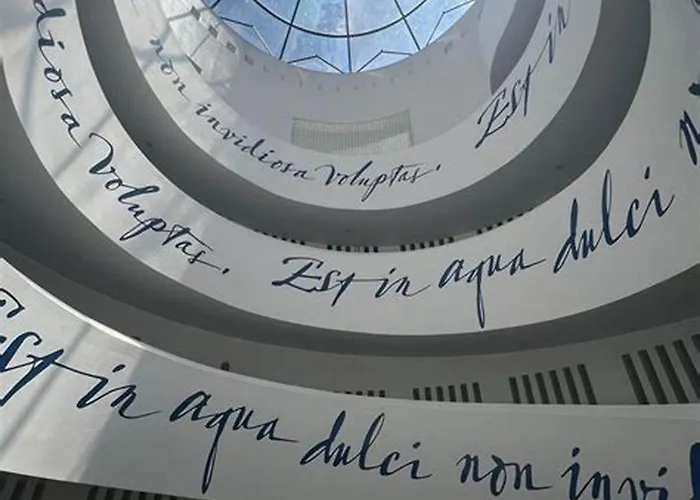 diosa voluptas. Est in aqua dulci
non invidiosa voluptas. Est in
Est in aqua dulci non invi